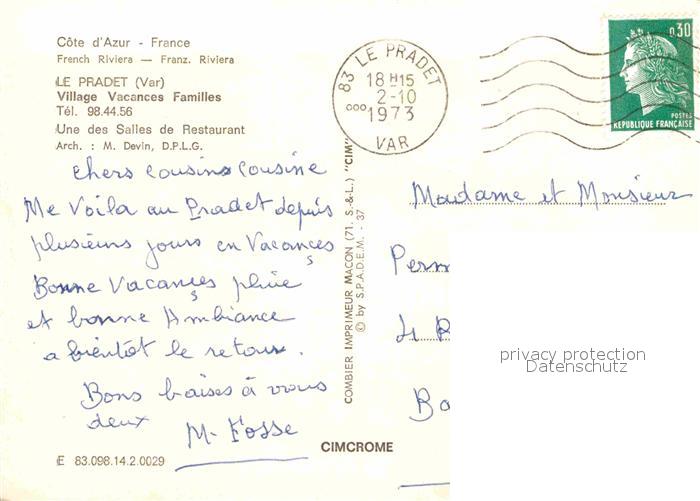 Côte d'Azur - France
French Riviera — Franz. Riviera
LE PRADET (Var)
Village Vacances Familles
Tél. 98.44.56
Une des Salles de Restaurant
Arch. : M. Devin, D.P.L.G.
chers cousins cousine
Me Voila au Pradet depuis
plusieurs jours en Vacances
Bonne Vacances pluie
et bonne Ambiance
a bientôt le retour.
Bons baises à vous
deux
M. Fosse
E 83.098.14.2.0029
COMBIER IMPRIMEUR MACON (71. S.-&-L.) "CIM"
© by S.P.A.D.E.M. - 37
CIMCROME
83 LE PRADET
18 H15
2-10
1973
VAR
0,30
POSTES
REPUBLIQUE FRANÇAISE
Madame et Monsieur
Perm
4 R
Bo
privacy protection
Datenschutz